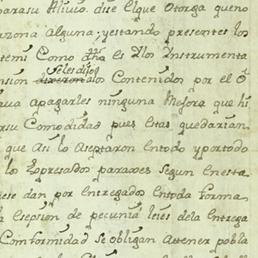 parasu Alivio. dise Elque Otorga queno
rzona Alguna, yestando presentes los
temi Como dhã es Dlos Instrumenta
Seles dijo
nsión dixeron alos Contenidos por el
ava apagarles ninguna Mejora que hi
rsu Comodidad pues Estas quedarian
que Asi lo Aseptaron Entodo y portodo
los Expresados paraxes Segun Enesta
ese dan por Entregados Entoda forma
la Esepsion de pecunia leies dela Entrega
Conformidad Se obligan Attener pobla